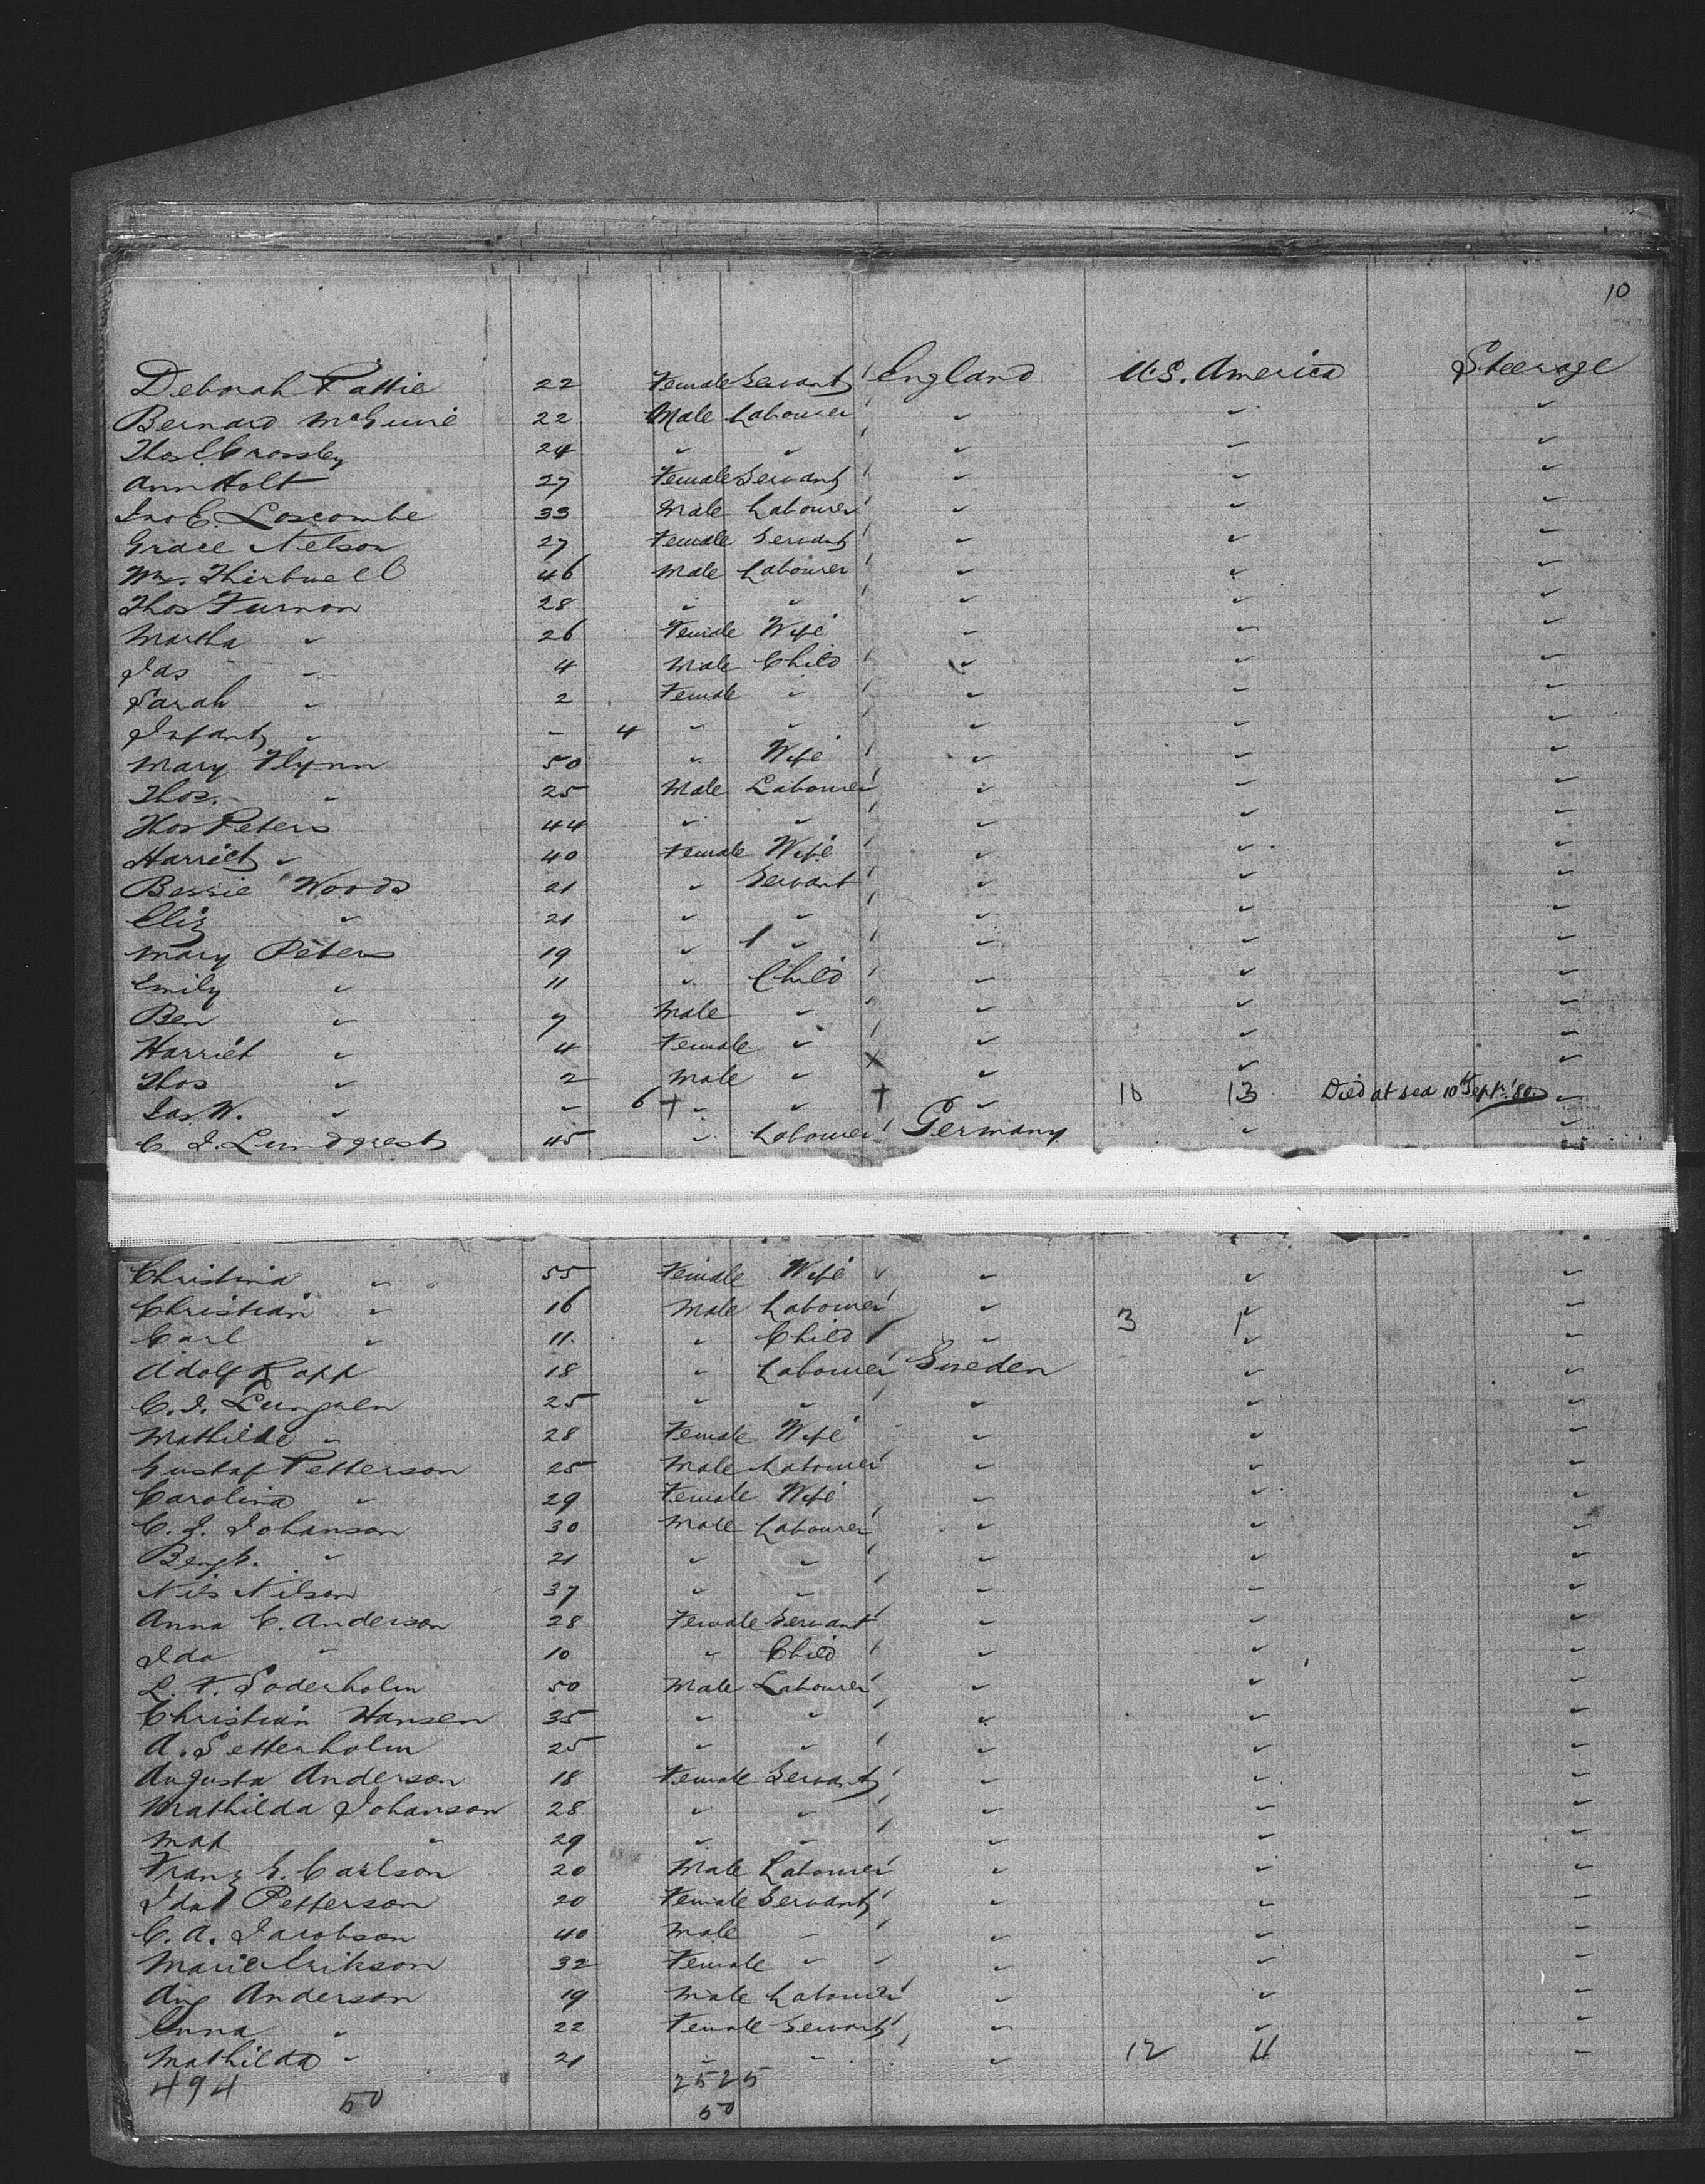 10
Deborah Pattie 22 Female Servant England U.S. America Steerage
Bernard McGuire 22 Male Labourer " " "
Thos E Crossley 24 " " " " "
Ann Holt 27 Female Servant " " "
Jno C. Loscombe 33 Male Labourer " " "
Grace Nelson 27 Female Servant " " "
Wm. Thirlwell 46 Male Labourer " " "
Thos Furnon 28 " " " " "
Martha " 26 Female Wife " " "
Jas " 4 Male Child " " "
Sarah " 2 Female " " " "
Infant " - 4 " " " " "
Mary Flynn 50 " Wife " " "
Thos. " 25 Male Labourer " " "
Thos Peters 44 " " " " "
Harriet " 40 Female Wife " " "
Bessie Woods 21 " Servant " " "
Eliz " 21 " " " " "
Mary Peters 19 " " " " "
Emily " 11 " Child " " "
Ben " 7 Male " " " "
Harriet " 4 Female " " " "
Thos " 2 Male " X " " "
Jas. W. " - 6 † " " † " 10 13 Died at sea 10th Sept. '80. "
C. J. Lundqrest 45 " Labourer Germany " "
Christina " 55 Female Wife " " "
Christian " 16 Male Labourer " 3 1 " "
Carl " 11 " Child " " "
Adolf Rapp 18 " Labourer Sweden " "
C. J. 25 " " " " "
Mathilde " 28 Female Wife " " "
Gustaf Petterson 25 Male Labourer " " "
Carolina " 29 Female Wife " " "
C. J. Johanson 30 Male Labourer " " "
Bengt. " 21 " " " " "
Nils Nilson 37 " " " " "
Anna C. Anderson 28 Female Servant " " "
Ida " 10 " Child " " "
L. F. Soderholm 50 Male Labourer " " "
Christian Hansen 35 " " " " "
A. Setterholm 25 " " " " "
Augusta Anderson 18 Female Servant " " "
Mathilda Johanson 28 " " " " "
Mat " 29 " " " " "
Franz G. Carlson 20 Male Labourer " " "
Ida Petterson 20 Female Servant " " "
C. A. Jacobson 40 Male " " " "
Maria Erikson 32 Female " " " "
Aug Anderson 19 Male Labourer " " "
Anna " 22 Female Servant " " "
Mathilda " 21 " " " 12 11 "
494 2525
50 50